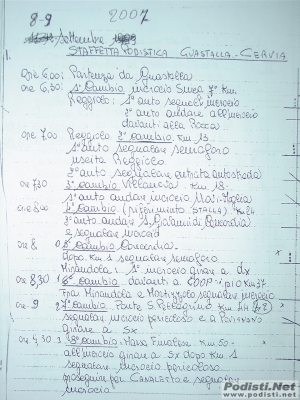 8-9 2007
Settembre
1. STAFFETTA PODISTICA GUASTALLA - CERVIA
ore 6,00: Partenza da Guastalla
ore 6,30: 1° Cambio incrocio 7° Km
Reggiolo: 1° auto incrocio
2° auto andare all'incrocio
davanti alla Rocca
ore 7,00 Reggiolo 2° cambio Km 13
1° auto segnalare semaforo
uscita Reggiolo
2° auto segnalare entrata autostrada
ore 7,30 3° cambio Villanova Km. 18:
1° auto andare incrocio Moglia
4° cambio (riferimento STALLA) Km 24
3° auto andare S. Giovanni Concordia
e segnalare incrocio
ore 8 5° cambio Concordia
dopo Km 1 segnalare semaforo
Mirandola: 1° incrocio girare a dx
ore 8,30 6° cambio davanti a COOP Km 37
Fra Mirandola e segnalare incrocio
ore 9 7° cambio Ponte S. Pellegrino Km 44
segnalare incrocio pericoloso e a
girare a sx
ore 9,30 8° cambio: Massa Finalese Km 50
all'incrocio girare a sx dopo Km 1
segnalare incrocio pericoloso
proseguire per CASALETTO e segnalare
incrocio
Podisti.Net
www.podisti.net